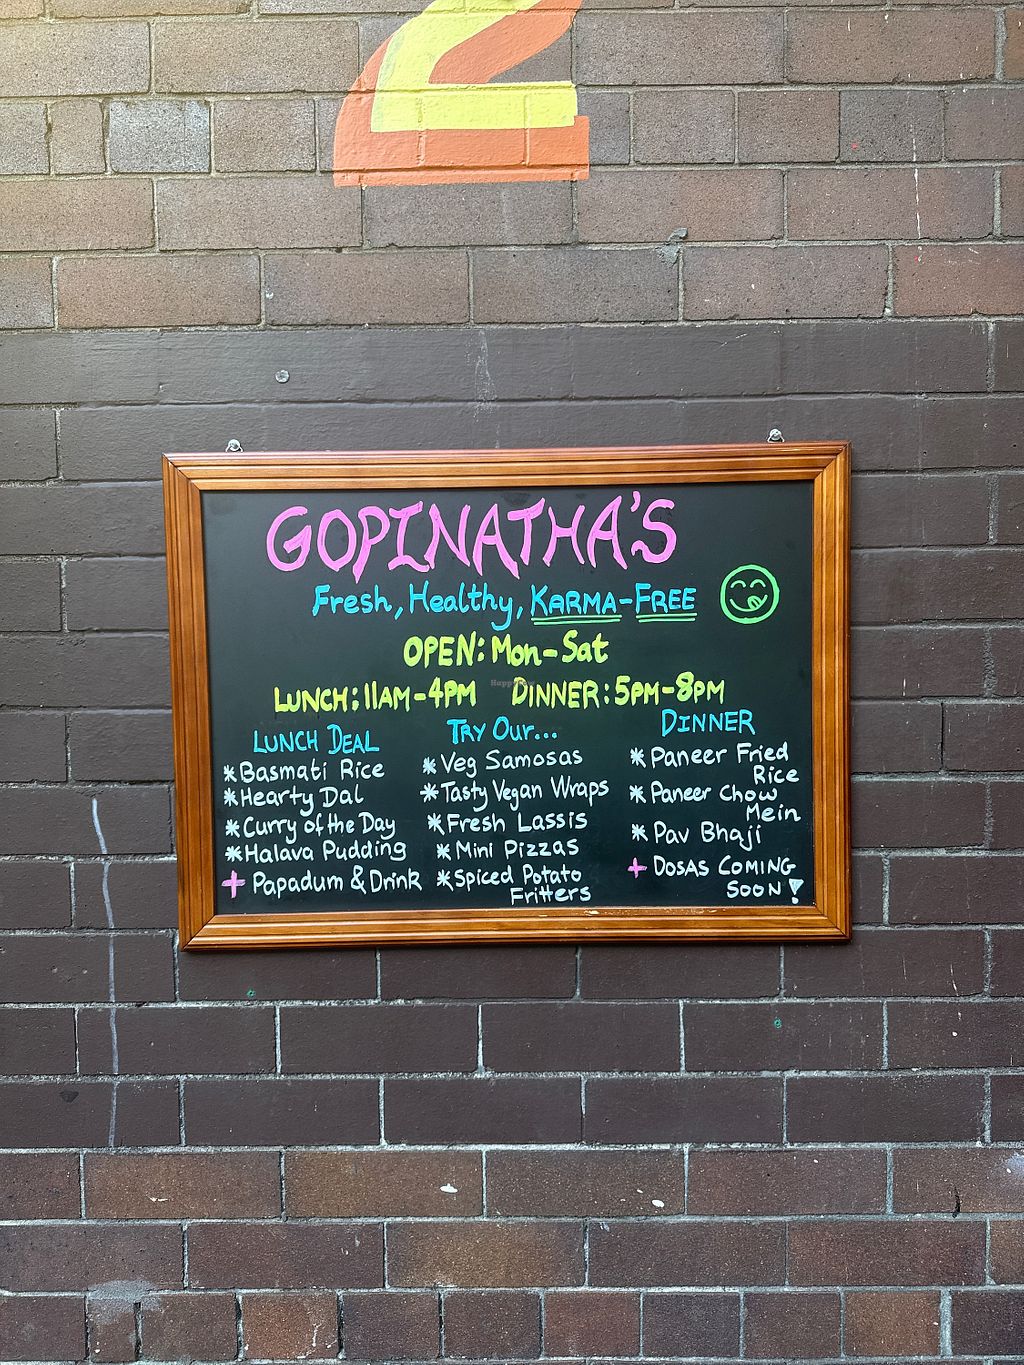 2
GOPINATHA'S
Fresh, Healthy, KARMA-FREE
OPEN: Mon-Sat
LUNCH: 11AM-4PM DINNER: 5PM-8PM
LUNCH DEAL
* Basmati Rice
* Hearty Dal
* Curry of the Day
* Halava Pudding
+ Papadum & Drink
TRY OUR...
* Veg Samosas
* Tasty Vegan Wraps
* Fresh Lassis
* Mini Pizzas
* Spiced Potato
Fritters
DINNER
* Paneer Fried
Rice
* Paneer Chow
Mein
* Pav Bhaji
+ DOSAS COMING
SOON!